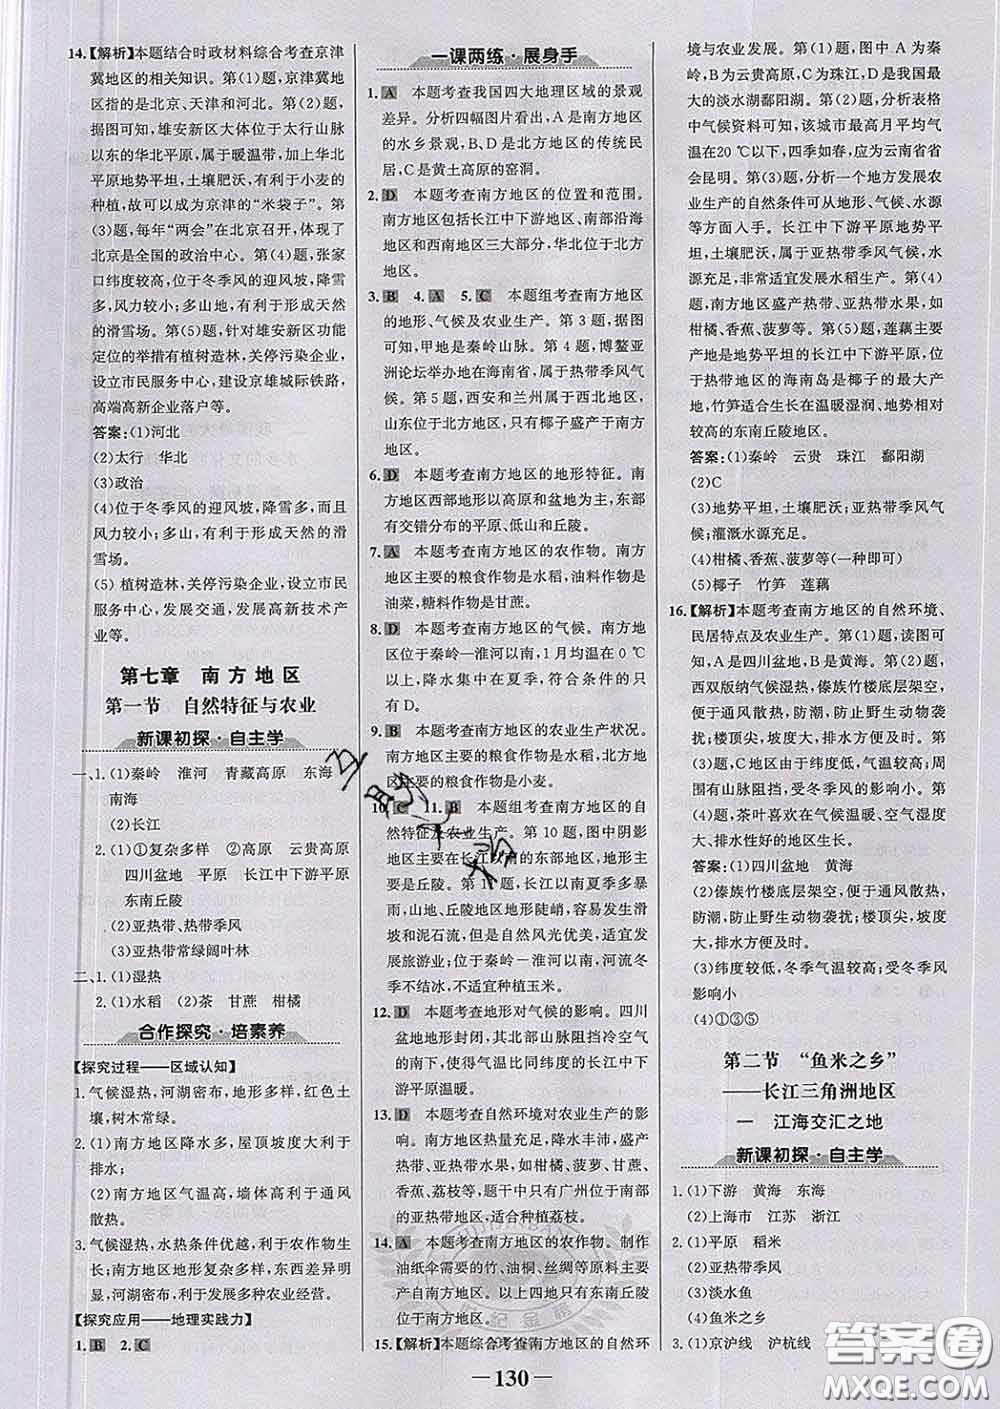 14.【解析】本题结合时政材料综合考查京津
冀地区的相关知识。第(1)题，京津冀地区
指的是北京、天津和河北。第(2)题，根据
图文材料，雄安新区大体位于太行山脉
以东的华北平原，属于暖温带，根据华北
平原地势平坦，土壤肥沃，有利于小麦
的种植，故可以成为京津的“米袋子”。第
(3)题，每年“两会”在北京召开，体现了
北京是全国的政治中心。第(4)题，张家
口纬度较高，位于冬季风的迎风坡，降雪
多，风力较小；多山地，有利于形成天然
的滑雪场。第(5)题，针对雄安新区功能
定位的举措有植树造林，关停污染企业，
设立市民服务中心，建设京雄城际铁路，
高端高新企业落户等。
答案：(1)河北
(2)太行　华北
(3)政治
(4)位于冬季风的迎风坡，降雪多，而且
风力较小；多山，有利于形成天然的滑
雪场。
(5)植树造林，关停污染企业，设立市民
服务中心，发展交通，发展高新技术产
业等。
第七章　南方地区
第一节　自然特征与农业
新课初探·自主学
一、1.(1)秦岭　淮河　青藏高原　东海
南海
(2)长江
2.(1)①复杂多样　②高原　云贵高原
四川盆地　平原　长江中下游平原
东南丘陵
(2)亚热带、热带季风
(3)亚热带常绿阔叶林
二、1.(1)湿热
2.(1)水稻　(2)茶　甘蔗　柑橘
合作探究·培素养
【探究过程——区域认知】
1.气候湿热，河湖密布，地形多样，红色土
壤，树木常绿。
2.(1)南方地区降水多，屋顶坡度大利于
排水；
(2)南方地区气温高，墙体高利于通风
散热。
3.气候湿热，水热条件优越，利于农作物生
长；南方地区地形复杂多样，东西差异明显，
河湖密布，利于发展多种农业经营。
【探究应用——地理实践力】
1.B　2.C
一课两练·展身手
1.A　本题考查我国四大地理区域的景观
差异。分析四幅图片看出，A是南方地区
的水乡景观，B、D是北方地区的传统民
居，C是黄土高原的窑洞。
2.D　本题考查南方地区的位置和范围。
南方地区包括长江中下游地区、南部沿海
地区和西南地区三大部分，华北位于北方
地区。
3.B　4.A　5.C　本题组考查南方地区
的地形、气候及农业生产。第3题，据图
可知，甲地是秦岭山脉。第4题，博鳌亚
洲论坛举办地在海南省，属于热带季风气
候。第5题，西安和兰州属于西北地区，
山东位于北方地区，只有椰子盛产于南方
地区。
6.D　本题考查南方地区的地形特征。南
方地区西部地形以高原和盆地为主，东部
有交错分布的平原、低山和丘陵。
7.A　本题考查南方地区的农作物。南方
地区主要的粮食作物是水稻，油料作物是
油菜，糖料作物是甘蔗。
8.D　本题考查南方地区的气候。南方
地区位于秦岭—淮河以南，1月均温大于
0℃，降水集中在夏季，符合条件的只
有D。
9.B　本题考查南方地区的农业生产状况。
南方地区主要的粮食作物是水稻，北方地
区主要的粮食作物是小麦。
10.C　11.B　本题组考查南方地区的自
然特征及农业生产。第10题，图中阴影
地区主要在长江以南的东部地区，地形主
要是丘陵。第11题，长江以南夏季多暴
雨，山地、丘陵地区地形陡峭，容易发生滑
坡和泥石流，但是自然风光优美，适宜发
展旅游业；位于秦岭—淮河以南，河流冬
季不结冰，不适宜种植玉米。
12.D　本题考查地形对气候的影响。四川
盆地地形封闭，其北部山脉阻挡冷空气
的南下，使得气温比同纬度的长江中下
游平原温暖。
13.D　本题考查自然环境对农业生产的影
响。南方地区热量充足，降水丰沛，盛产
热带、亚热带水果，如柑橘、菠萝、甘蔗、
香蕉、荔枝等，题干中只有广州位于南部
的亚热带地区，适合种植荔枝。
14.A　本题考查南方地区的农作物。制作
油纸伞需要的竹、油桐、丝绸等原料主要
来自南方地区。
15.【解析】本题综合考查南方地区的自然环
境与农业发展。第(1)题，图中A为秦
岭，B为云贵高原，C为珠江，D为我国最
大的淡水湖鄱阳湖。第(2)题，分析表格
中气候资料可知，该城市最高月平均气
温在20℃以下，四季如春，应为云南省省
会昆明。第(3)题，分析一个地方发展农
业生产的自然条件可从地形、气候、水源
等方面入手。长江中下游平原地势平
坦，土壤肥沃，属于亚热带季风气候，
水源充足，非常适宜发展水稻生产。第(4)
题，南方地区盛产热带、亚热带水果，如
柑橘、香蕉、菠萝等。第(5)题，莲藕主要
产地是地势平坦的长江中下游平原，
位于热带的海南岛是椰子的最大产
地，竹笋适合生长在温暖湿润、地势相对
较高的东南丘陵地区。
答案：(1)秦岭　云贵　珠江　鄱阳湖
(2)C
(3)地势平坦，土壤肥沃；亚热带季风气
候；灌溉水源充足。
(4)柑橘、香蕉、菠萝等(一种即可)
(5)椰子　竹笋　莲藕
16.【解析】本题考查南方地区的自然环境、
民居特点及农业生产。第(1)题，根据图示
可知，A是四川盆地，B是黄海。第(2)题，
西双版纳气候湿热，傣族竹楼底层架空，便
于通风散热，防潮，防止野生动物袭扰；
楼顶尖，坡度大，排水方便。第(3)题，
该地区纬度低，冬季气温较高；周围
有山脉阻挡，受冬季风的影响小。第(4)
题，茶叶喜高温湿润的气候、酸性土
壤，排水性好的地区生长。
答案：(1)四川盆地　黄海
(2)傣族竹楼底层架空，便于通风散热，
防潮，防止野生动物袭扰；楼顶尖，坡度
大，排水方便。
(3)纬度较低，冬季气温较高；受冬季风
影响小
(4)①③⑤
第二节　“鱼米之乡”
——长江三角洲地区
一　江海交汇之地
新课初探·自主学
1.(1)下游　黄海　东海
(2)上海市　江苏　浙江
2.(1)平原　稻米
(2)亚热带季风
(3)淡水鱼
(4)鱼米之乡
3.(1)京沪线　沪杭线
130
答案圈
MXQE.COM